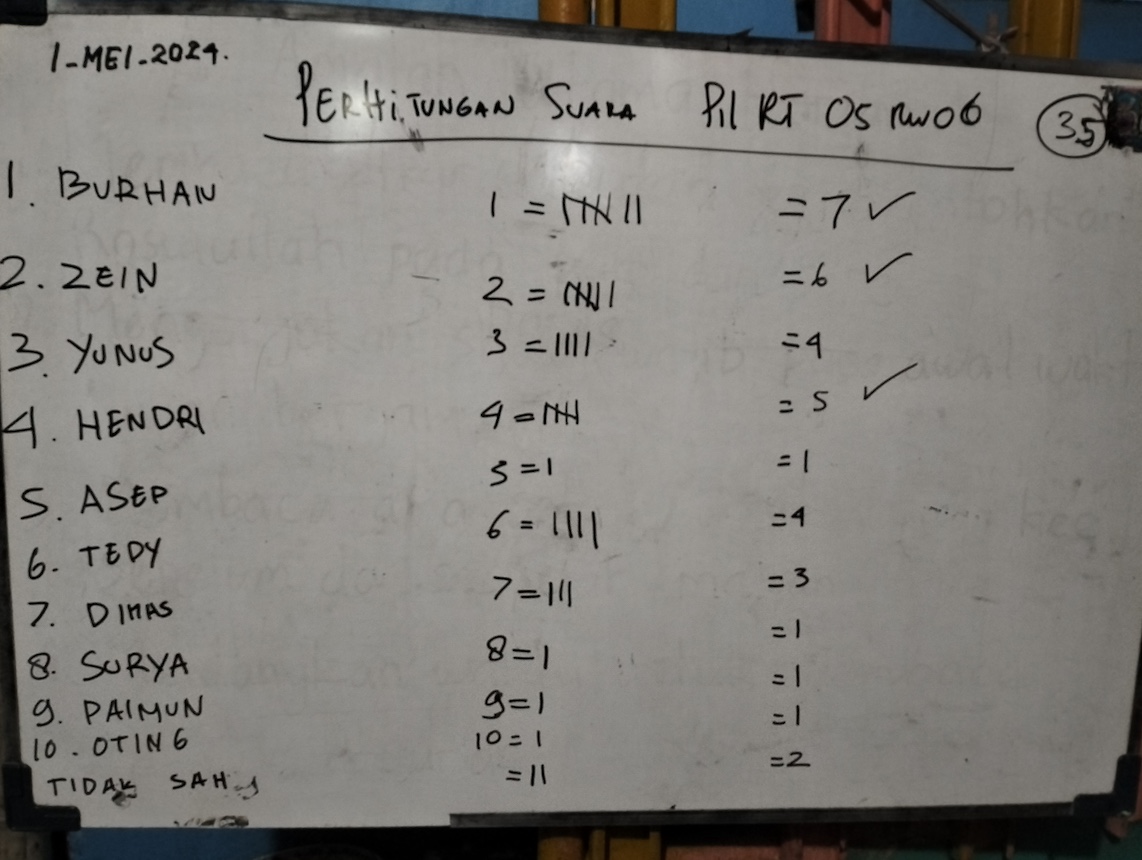 1-MEI-2024.
PERHITUNGAN SUARA PIL RT 05 RW 06 35
1. BURHAN 1 = IIIII II = 7 ✓
2. ZEIN 2 = IIIII I = 6 ✓
3. YUNUS 3 = IIII = 4
4. HENDRI 4 = IIIII = 5 ✓
5. ASEP 5 = I = 1
6. TEDY 6 = IIII = 4
7. DIMAS 7 = III = 3
8. SURYA 8 = I = 1
9. PAIMUN 9 = I = 1
10. OTING 10 = I = 1
TIDAK SAH = II = 2